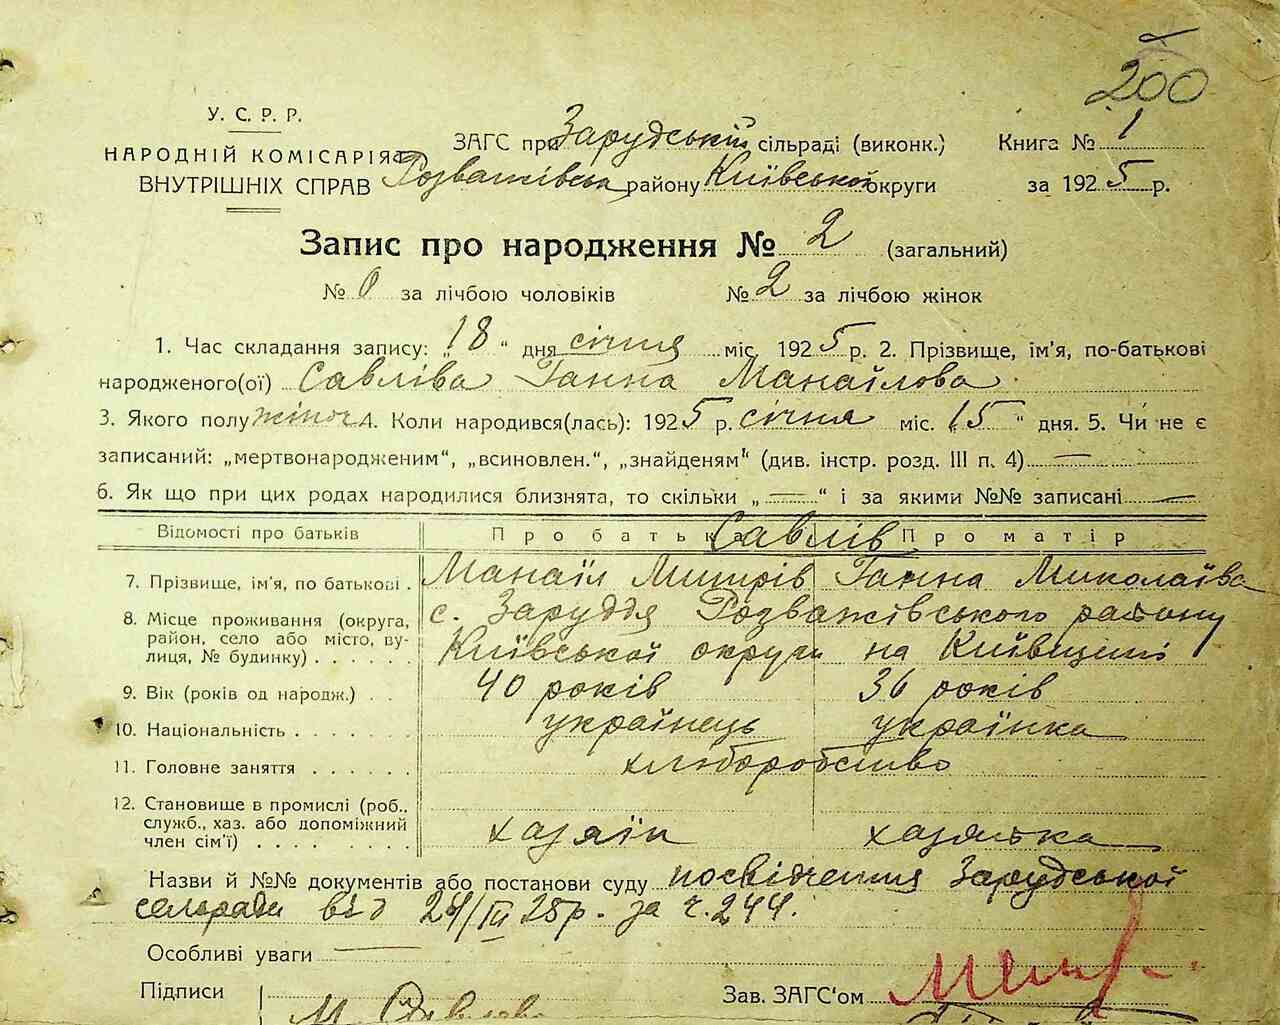 200
У. С. Р. Р.
НАРОДНІЙ КОМІСАРІЯТ
ВНУТРІШНІХ СПРАВ
ЗАГС при Зарудській сільраді (виконк.) Книга № 1
Розважівськ району Київської округи за 1925 р.
Запис про народження № 2 (загальний)
№ 0 за лічбою чоловіків № 2 за лічбою жінок
1. Час складання запису: „18“ дня січня міс. 1925 р. 2. Прізвище, ім'я, по-батькові
народженого(ої) Савліва Ганна Манаїлова
3. Якого полу жіноч 4. Коли народився(лась): 1925 р. січня міс. „15“ дня. 5. Чи не є
записаний: „мертвонародженим“, „всиновлен.“, „знайденям“ (див. інстр. розд. III п. 4) —
6. Як що при цих родах народилися близнята, то скільки „—“ і за якими №№ записані —
Відомості про батьків Про батька Савлів Про матір
7. Прізвище, ім'я, по батькові . Манаїл Митрів Ганна Миколаїва
8. Місце проживання (округа, с. Заруддя Розважівського району
район, село або місто, ву-
лиця, № будинку) . . . . . . Київської округи на Київщині
9. Вік (років од народж.) . . 40 років 36 років
10. Національність . . . . . українець українка
11. Головне заняття . . . . . . хліборобство
12. Становище в промислі (роб.,
служб., хаз. або допоміжний
член сім'ї) . . . . . . . . хазяїн хазяйка
Назви й №№ документів або постанови суду посвідчення Зарудської
сельради від 25р. за ч. 244.
Особливі уваги —
Підписи Зав. ЗАГС'ом